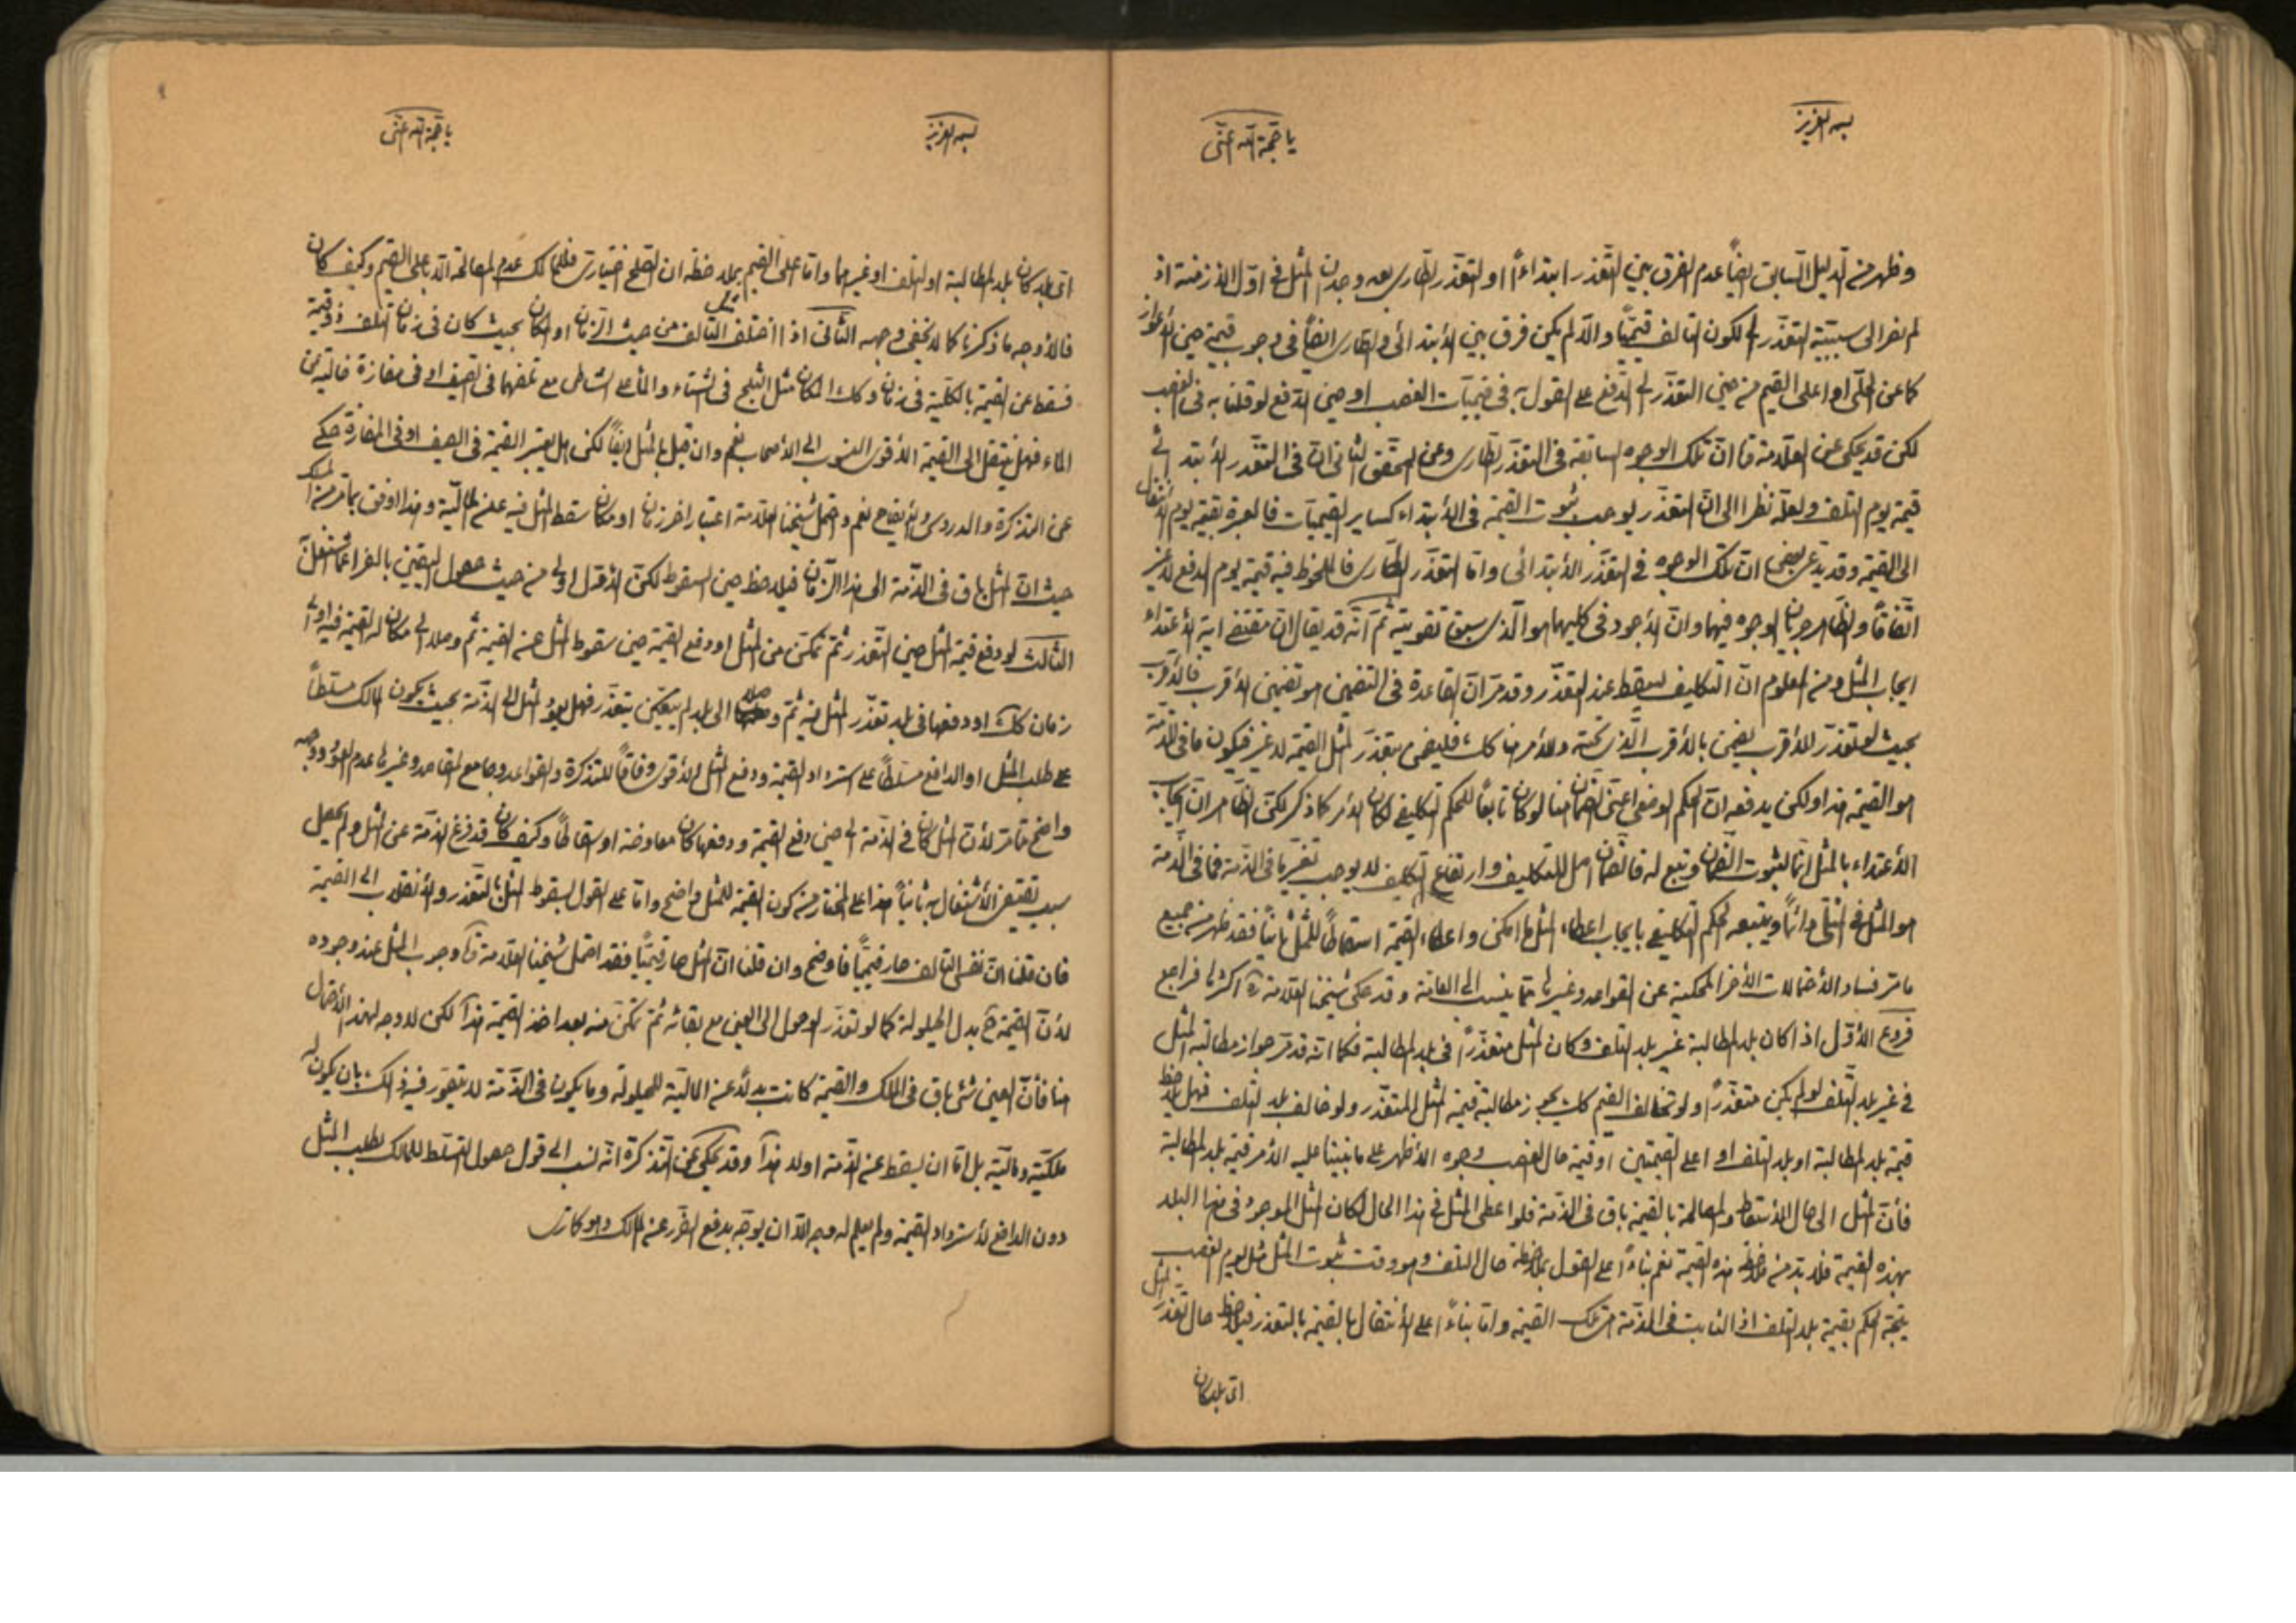 بسمه العزيز
يا حجة الله عنى
وظهر من الدليل السابق ايضاً عدم الفرق بين التعذر ابتداءً او التعذر الطارى بعد وجدان المثل فى اول الازمنة اذ
لم نفر الى سببية التعذر لكون التالف قيمياً والا لم يكن فرق بين الابتدائى والطارى ايضاً فى وجوب قيمة حين الاعواز
كما عن الحلى او اعلى القيم من حين التعذر الى الدفع على القول به فى قيميات الغصب او حين الدفع لو قلنا به فى الغصب
لكن قد يحكى عن العلامة ان تلك الوجوه السابقة فى التعذر الطارى وعن المحقق الثانى ان فى التعذر الابتدائى
قيمة يوم التلف ولعله نظرا الى ان التعذر يوجب ثبوت القيمة فى الابتداء كساير القيميات فالعبرة بقيمة يوم الانتقال
الى القيمة وقد يدعى بعض ان تلك الوجوه فى التعذر الابتدائى واما التعذر الطارى فالملحوظ فيه قيمة يوم الدفع لا غير
اتفاقاً والظاهر جريان الوجوه فيهما وان الاجود فى كليهما هو الذى سبق تقويته ثم انه قد يقال ان مقتضى اية الاعتداء
ايجاب المثل ومن المعلوم ان التكاليف يسقط عند التعذر وقد مر ان القاعدة فى التضمين هو تضمين الاقرب فالاقرب
بحيث لو تعذر الاقرب يضمن بالاقرب الذى تحته والامر هنا كك فليقض بتعذر المثل القيمة لا غير فيكون ما فى الذمة
هو القيمة هذا ولكن يدفعه ان الحكم الوضعى اعنى الضمان هنا لو كان تابعاً للحكم التكليفى لكان الامر كما ذكر لكن الظاهر ان ايجاب
الاعتداء بالمثل انما لثبوت الضمان وتبع له فالضمان اصل للتكليف وارتفاع التكليف لا يوجب تغيرنا فى الذمة فما فى الذمة
هو المثل فى المثلى دائماً ويتبعه الحكم التكليفى بايجاب اعطاء المثل ما امكن واعطاء القيمة اسقاطاً للمثل ثانياً فقد ظهر من جميع
ما مر فساد الاحتمالات الاخر المحكية عن القواعد وغيرها مما ينسب الى العامة وقد حكى شيخنا العلامة ره اكثرها فراجع
فروع الاول اذا كان بلد المطالبة غير بلد التلف وكان المثل متعذراً فى بلد المطالبة فكما انه قد مر جواز مطالبة المثل
فى غير بلد التلف لو لم يكن متعذراً ولو تخالف القيم كك يجوز مطالبة قيمة المثل المتعذر ولو خالف بلد التلف فهل يلاحظ
قيمة بلد المطالبة او بلد التلف او اعلى القيمتين او قيمة حال الغصب وجوه الاظهر على ما بنينا عليه الامر قيمة بلد المطالبة
فان المثل الى حال الاسقاط والمصالحة بالقيمة باق فى الذمة فلو اعطى المثل فى هذا الحال لكان المثل الموجود فى هذا البلد
بهذه القيمة فلا بد من ملاحظة هذه القيمة نعم بناءً على القول بملاحظة حال التلف وهو وقت ثبوت المثل مثل يوم الغصب
يتجه الحكم بقيمة بلد التلف اذ الثابت فى الذمة هى تلك القيمة واما بناءً على الانتقال بالقيمة بالتعذر فيلاحظ حال تعذر المثل
اى بلد كان
بسمه العزيز
يا حجة الله عنى
اى بلد كان بلد المطالبة او التلف او غيرهما واما على القيم بملاحظة ان الصلح اختيارى فللمالك عدم المصالحة الا باعلى القيم وكيف كان
فالاوجه ما ذكرنا كما لا يخفى وجهه الثانى اذا اختلف التالف من حيث الزمان او المكان بحيث كان فى زمان التلف ذو قيمة
فسقط عن القيمة بالكلية فى زمان وكك المكان مثل الثلج فى الشتاء والماء على الشاطى مع تلفهما فى الصيف او فى مفازة خالية من
الماء فهل ينتقل الى القيمة الاقوى المنسوب الى الاصحاب نعم وان قيل بالمثل ايضاً لكن هل يعتبر القيمة فى الصيف او فى المفازة حكى
عن التذكرة والدروس والايضاح نعم واحتمل شيخنا العلامة اعتبار اخر زمان او مكان سقط المثل فيه عن المالية وهذا اوفق بما مر من المسلك
حيث ان المثل باق فى الذمة الى هذا الزمان فيلاحظ حين السقوط لكن الاول اولى من حيث حصول اليقين بالفراغ عما اشتغل
الثالث لو دفع قيمة المثل حين التعذر ثم تمكن من المثل او دفع القيمة حين سقوط المثل عن القيمة ثم وصلا الى مكان له القيمة فيه او الى
زمان كك او دفعها فى بلد تعذر المثل فيه ثم وصلا الى بلد لم يتعذر فهل يعود المثل الى الذمة بحيث يكون المالك مسلطاً
على طلب المثل او الدافع مسلطاً على استرداد القيمة ودفع المثل الاقوى وفاقاً للتذكرة والقواعد وجامع المقاصد وغيرها عدم العود ووجهه
واضح مما مر لان المثل كان فى الذمة الى حين دفع القيمة ودفعها كان معاوضة او اسقاطاً وكيف كان قد فرغ الذمة عن المثل ولم يحصل
سبب يقتضى الاشتغال به ثانياً هذا على المختار من كون القيمة للمثل واضح واما على القول بسقوط المثل بالتعذر والانقلاب الى القيمة
فان قلنا ان نفس التالف صار قيمياً فاوضح وان قلنا ان المثل صار قيمياً فقد احتمل شيخنا العلامة ره وجوب المثل عند وجوده
لان القيمة ح بدل الحيلولة كما لو تعذر الوصول الى العين مع بقائه ثم تمكن منه بعد اخذ القيمة هذا لكن لا وجه لهذا الاحتمال
هنا فان العين شئ باق فى الملك والقيمة كانت بدلاً عن المالية للحيلولة وما يكون فى الذمة لا يتصور فيه ذلك بان يكون له
ملكية ومالية بل اما ان يسقط عن الذمة او لا هذا وقد يحكى عن التذكرة انه نسب الى قول حصول التسلط للمالك بطلب المثل
دون الدافع لاسترداد القيمة ولم يعلم له وجه الا ان يوجه بدفع الضرر عن المالك وهو كاترى